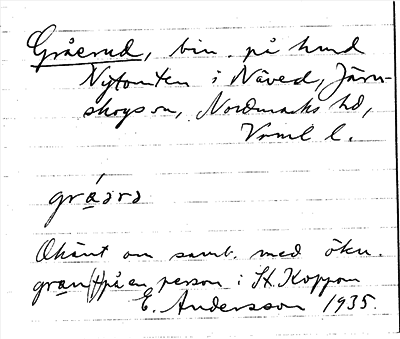 Gråerud, bin. på hund
Nytomten i Näved, Järn-
skogs sn, Nordmarks hd,
Vrml l.
gráərə
Okänt om samb. med ökn.
gran(t) på en person i St. Koppom
E. Andersson 1935